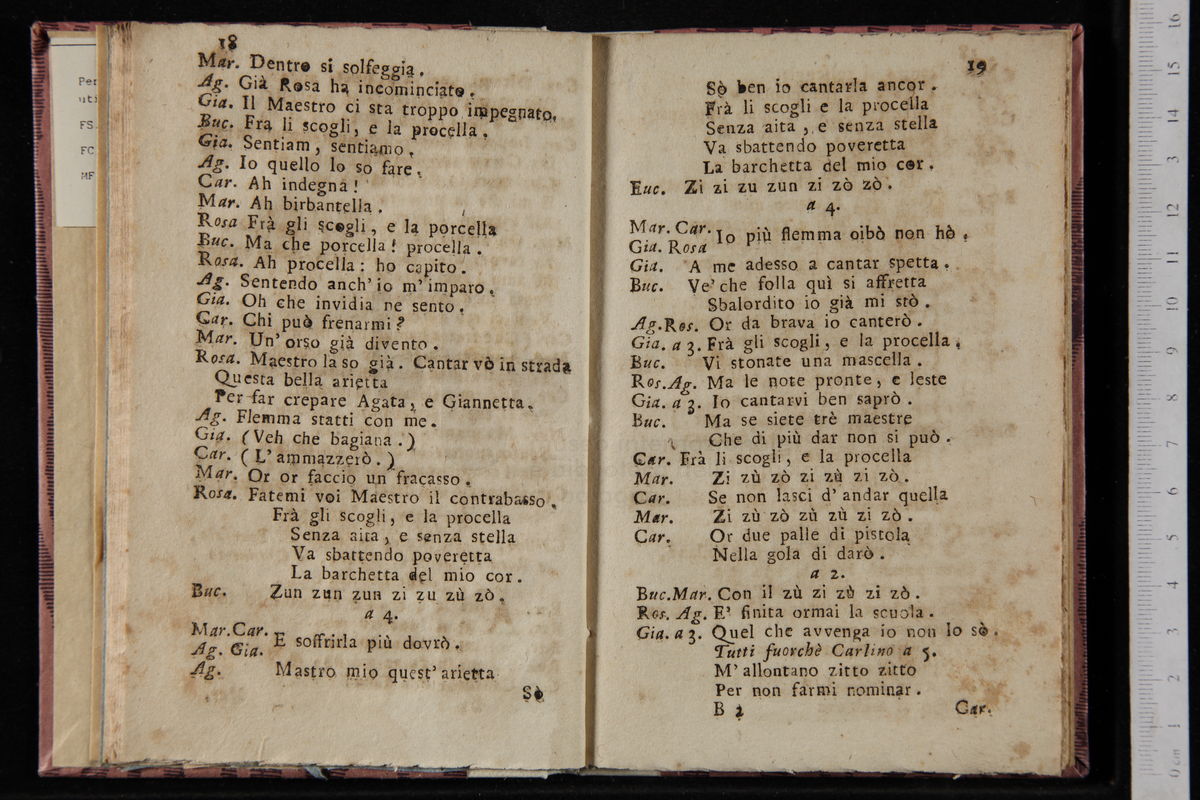 Per
uti
FS.
FC
MF
18
Mar. Dentro si solfeggia.
Ag. Già Rosa ha incominciato.
Gia. Il Maestro ci sta troppo impegnato.
Buc. Fra li scogli, e la procella.
Gia. Sentiam, sentiamo.
Ag. Io quello lo so fare.
Car. Ah indegna!
Mar. Ah birbantella.
Rosa Frà gli scogli, e la porcella
Buc. Ma che porcella! procella.
Rosa. Ah procella: ho capito.
Ag. Sentendo anch' io m' imparo.
Gia. Oh che invidia ne sento.
Car. Chi può frenarmi?
Mar. Un' orso già divento.
Rosa. Maestro la so già. Cantar vò in strada
Questa bella arietta
Per far crepare Agata, e Giannetta.
Ag. Flemma statti con me.
Gia. (Veh che bagiana.)
Car. (L' ammazzerò.)
Mar. Or or faccio un fracasso.
Rosa. Fatemi voi Maestro il contrabasso.
Frà gli scogli, e la procella
Senza aita, e senza stella
Va sbattendo poveretta
La barchetta del mio cor.
Buc. Zun zun zun zi zu zù zò.
a 4.
Mar. Car.
Ag. Gia. E soffrirla più dovrò.
Ag. Mastro mio quest' arietta
Sò
19
Sò ben io cantarla ancor.
Frà li scogli e la procella
Senza aita, e senza stella
Va sbattendo poveretta
La barchetta del mio cor.
Euc. Zi zi zu zun zi zò zò.
a 4.
Mar. Car.
Gia. Rosa Io più flemma oibò non hò.
Gia. A me adesso a cantar spetta.
Buc. Ve' che folla quì si affretta
Sbalordito io già mi stò.
Ag. Ros. Or da brava io canterò.
Gia. a 3. Frà gli scogli, e la procella.
Buc. Vi stonate una mascella.
Ros. Ag. Ma le note pronte, e leste
Gia. a 3. Io cantarvi ben saprò.
Buc. Ma se siete trè maestre
Che di più dar non si può.
Car. Frà li scogli, e la procella
Mar. Zi zù zò zi zù zi zò.
Car. Se non lasci d' andar quella
Mar. Zi zù zò zù zù zi zò.
Car. Or due palle di pistola
Nella gola di darò.
a 2.
Buc. Mar. Con il zù zi zù zi zò.
Ros. Ag. E' finita ormai la scuola.
Gia. a 3. Quel che avvenga io non lo sò.
Tutti fuorchè Carlino a 5.
M' allontano zitto zitto
Per non farmi nominar.
B 2 Car.
16
15
14
13
12
11
10
9
8
7
6
5
4
3
2
1
0 cm